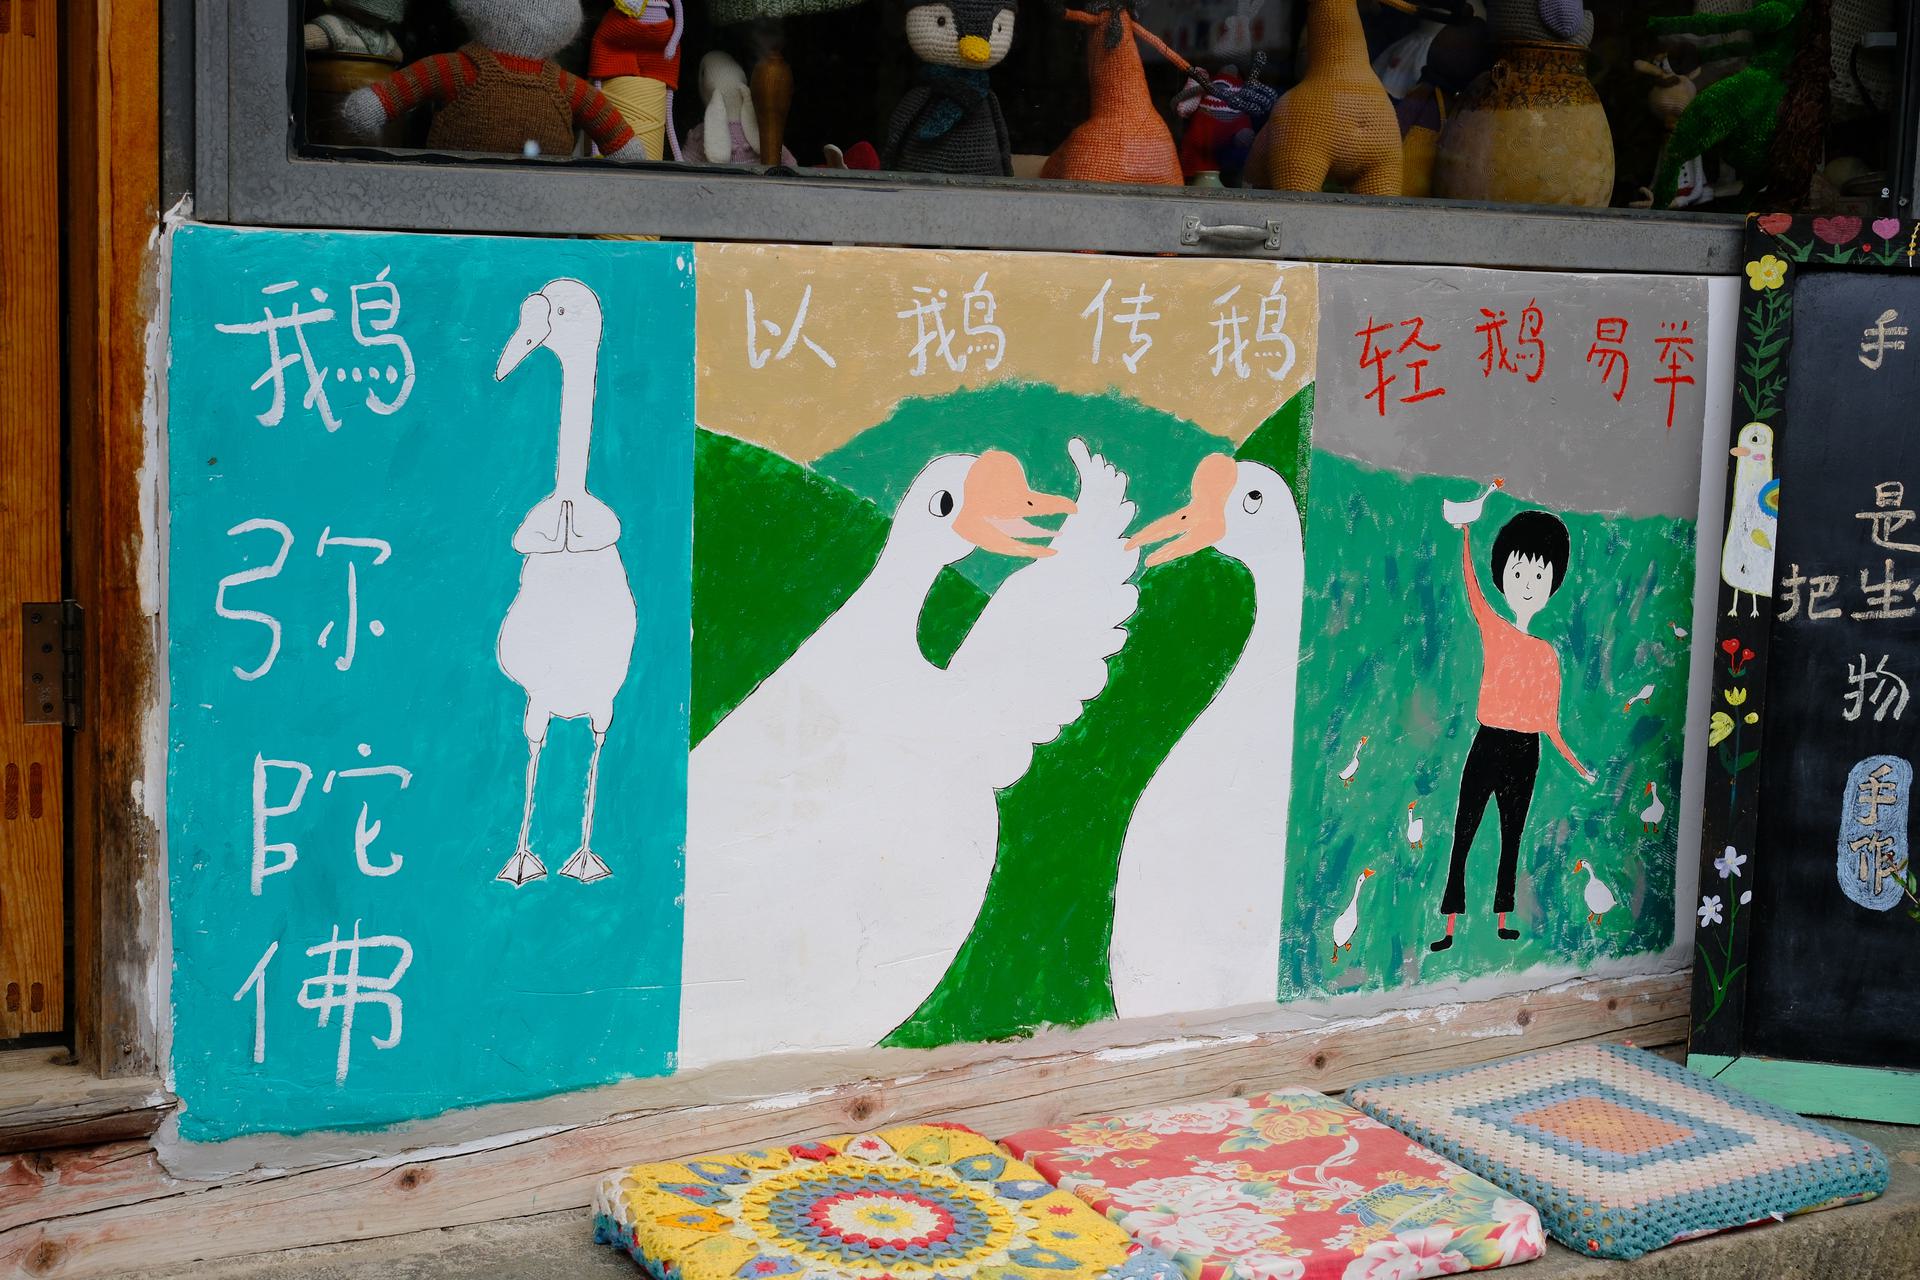 鹅
弥
陀
佛
以鹅传鹅
轻鹅易举
手
是
把生
物
手
作